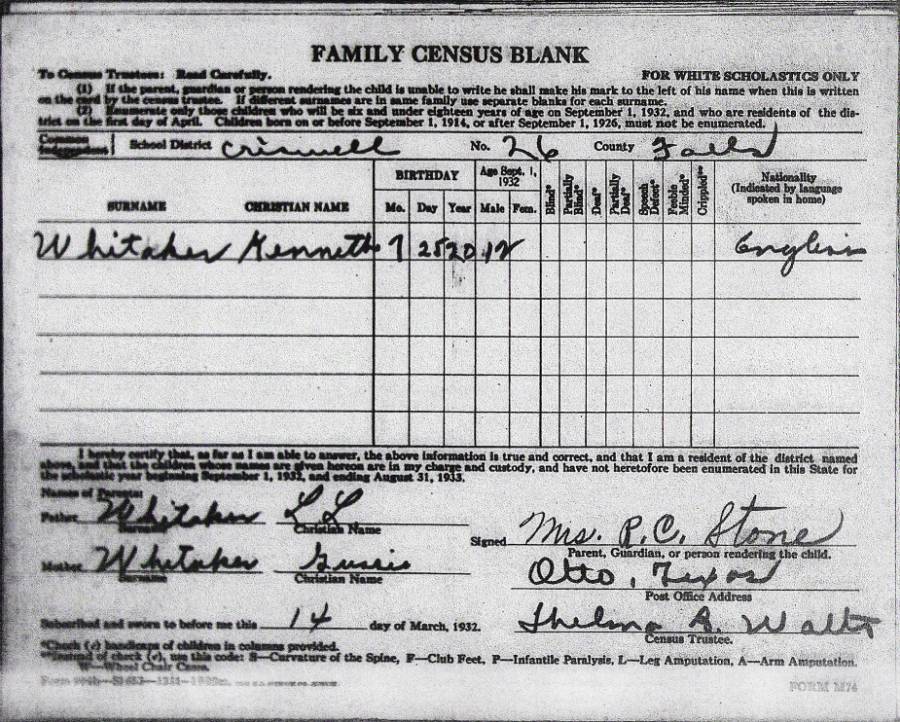 FAMILY CENSUS BLANK
To Census Trustees: Read Carefully. FOR WHITE SCHOLASTICS ONLY
(1) If the parent, guardian or person rendering the child is unable to write he shall make his mark to the left of his name when this is written
on the card by the census trustee. If different surnames are in same family use separate blanks for each surname.
(2) Enumerate only those children who will be six and under eighteen years of age on September 1, 1932, and who are residents of the dis-
trict on the first day of April. Children born on or before September 1, 1914, or after September 1, 1926, must not be enumerated.
Common
Independent School District Criswell No. 26 County Falls
SURNAME CHRISTIAN NAME
BIRTHDAY
Mo. Day Year
Age Sept. 1,
1932
Male Fem.
Blind*
Partially
Blind*
Deaf*
Partially
Deaf*
Speech
Defect*
Feeble
Minded*
Crippled**
Nationality
(Indicated by language
spoken in home)
Whitaker Kenneth 7 25 20 12 English
I hereby certify that, as far as I am able to answer, the above information is true and correct, and that I am a resident of the district named
above, and that the children whose names are given hereon are in my charge and custody, and have not heretofore been enumerated in this State for
the scholastic year beginning September 1, 1932, and ending August 31, 1933.
Names of Parents:
Father Whitaker L L
Surname Christian Name
Signed Mrs. P.C. Stone
Parent, Guardian, or person rendering the child.
Mother Whitaker Gussie
Surname Christian Name
Otto, Texas
Post Office Address
Subscribed and sworn to before me this 14 day of March, 1932.
Thelma B. Walts
Census Trustee.
*Check (√) handicaps of children in columns provided.
**Instead of check (√), use this code: S—Curvature of the Spine, F—Club Feet, P—Infantile Paralysis, L—Leg Amputation, A—Arm Amputation.
W—Wheel Chair Cases.
FORM M74